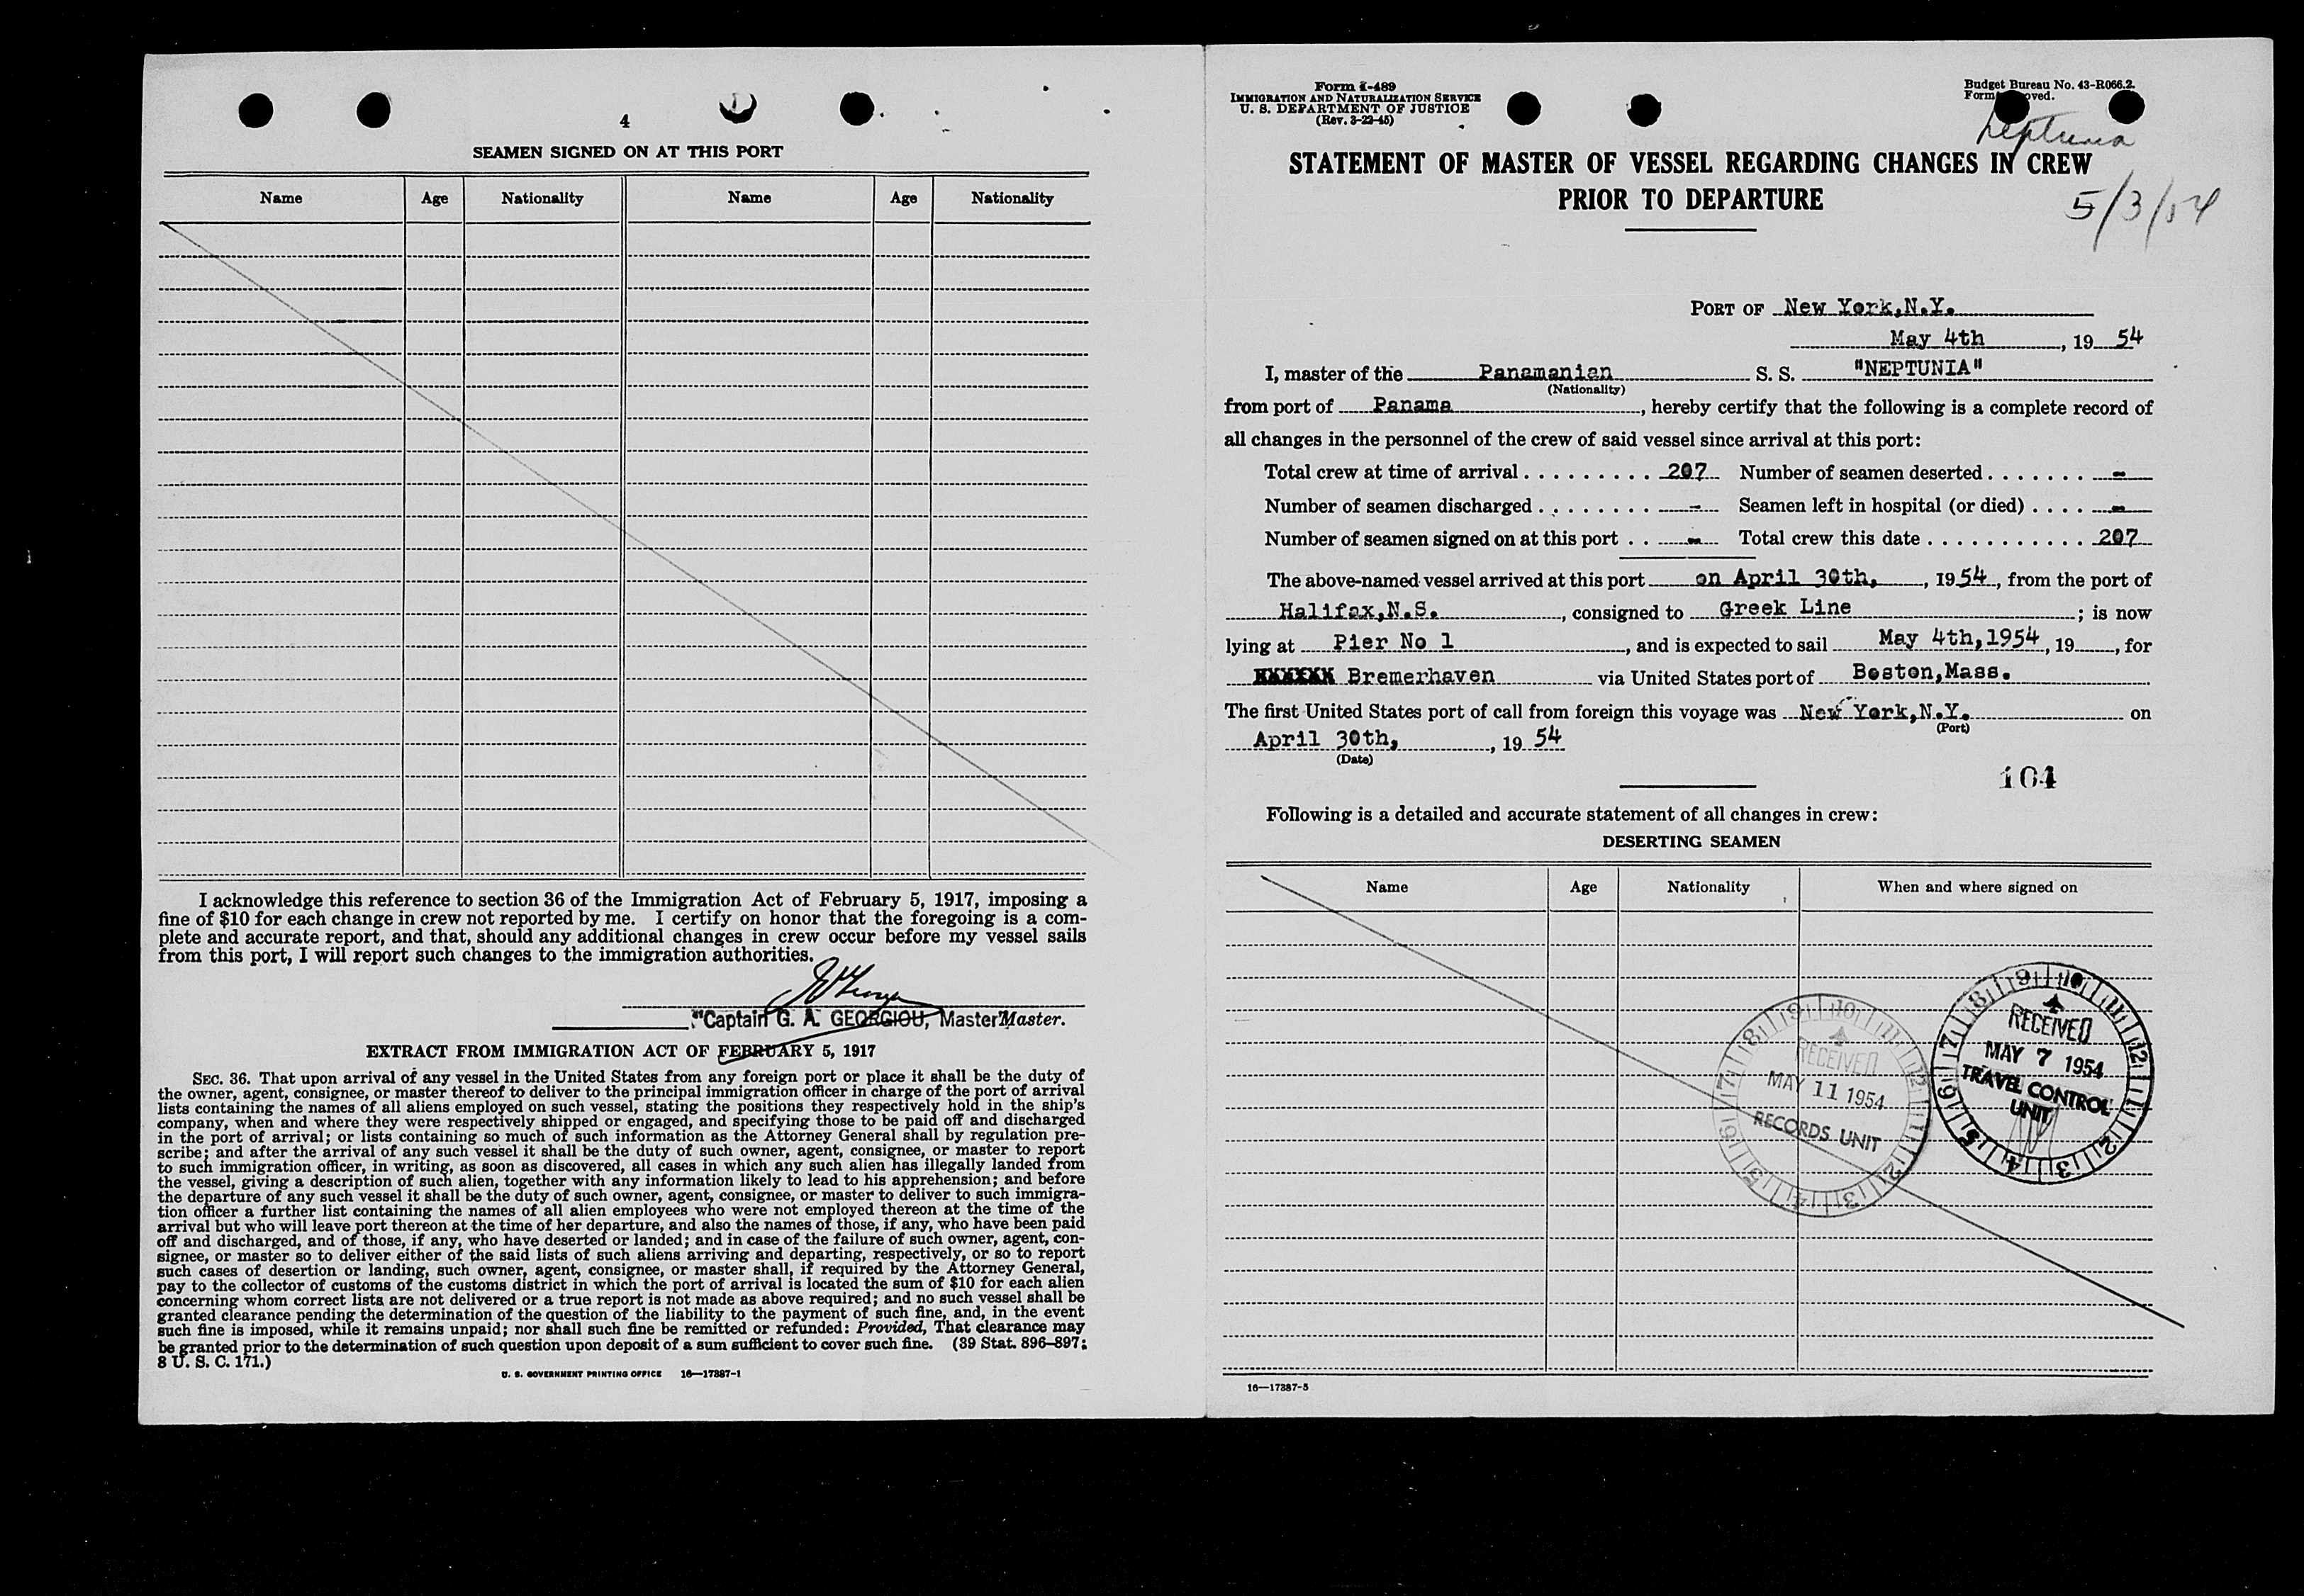 4
SEAMEN SIGNED ON AT THIS PORT
Name Age Nationality Name Age Nationality
I acknowledge this reference to section 36 of the Immigration Act of February 5, 1917, imposing a
fine of $10 for each change in crew not reported by me. I certify on honor that the foregoing is a com-
plete and accurate report, and that, should any additional changes in crew occur before my vessel sails
from this port, I will report such changes to the immigration authorities.
"Captain G. A. GEORGIOU, Master" Master.
EXTRACT FROM IMMIGRATION ACT OF FEBRUARY 5, 1917
SEC. 36. That upon arrival of any vessel in the United States from any foreign port or place it shall be the duty of
the owner, agent, consignee, or master thereof to deliver to the principal immigration officer in charge of the port of arrival
lists containing the names of all aliens employed on such vessel, stating the positions they respectively hold in the ship's
company, when and where they were respectively shipped or engaged, and specifying those to be paid off and discharged
in the port of arrival; or lists containing so much of such information as the Attorney General shall by regulation pre-
scribe; and after the arrival of any such vessel it shall be the duty of such owner, agent, consignee, or master to report
to such immigration officer, in writing, as soon as discovered, all cases in which any such alien has illegally landed from
the vessel, giving a description of such alien, together with any information likely to lead to his apprehension; and before
the departure of any such vessel it shall be the duty of such owner, agent, consignee, or master to deliver to such immigra-
tion officer a further list containing the names of all alien employees who were not employed thereon at the time of the
arrival but who will leave port thereon at the time of her departure, and also the names of those, if any, who have been paid
off and discharged, and of those, if any, who have deserted or landed; and in case of the failure of such owner, agent, con-
signee, or master so to deliver either of the said lists of such aliens arriving and departing, respectively, or so to report
such cases of desertion or landing, such owner, agent, consignee, or master shall, if required by the Attorney General,
pay to the collector of customs of the customs district in which the port of arrival is located the sum of $10 for each alien
concerning whom correct lists are not delivered or a true report is not made as above required; and no such vessel shall be
granted clearance pending the determination of the question of the liability to the payment of such fine, and, in the event
such fine is imposed, while it remains unpaid; nor shall such fine be remitted or refunded: Provided, That clearance may
be granted prior to the determination of such question upon deposit of a sum sufficient to cover such fine. (39 Stat. 896–897;
8 U. S. C. 171.)
U. S. GOVERNMENT PRINTING OFFICE 16—17387-1
Form I-489
IMMIGRATION AND NATURALIZATION SERVICE
U. S. DEPARTMENT OF JUSTICE
(Rev. 3-22-45)
Budget Bureau No. 43-R066.2.
Form
Neptunia
STATEMENT OF MASTER OF VESSEL REGARDING CHANGES IN CREW
PRIOR TO DEPARTURE
5/3/54
PORT OF New York,N.Y.
May 4th, 1954
I, master of the Panamanian S. S. "NEPTUNIA"
(Nationality)
from port of Panama, hereby certify that the following is a complete record of
all changes in the personnel of the crew of said vessel since arrival at this port:
Total crew at time of arrival . . . . . . . . . . 207 Number of seamen deserted . . . . . . . -
Number of seamen discharged . . . . . . . . - Seamen left in hospital (or died) . . . . -
Number of seamen signed on at this port . . - Total crew this date . . . . . . . . . . . . 207
The above-named vessel arrived at this port on April 30th, , 1954, from the port of
Halifax,N.S. , consigned to Greek Line ; is now
lying at Pier No 1 , and is expected to sail May 4th,1954, 19 , for
XXXXXX Bremerhaven via United States port of Boston,Mass.
The first United States port of call from foreign this voyage was New York,N.Y. on
(Port)
April 30th, , 1954
(Date)
104
Following is a detailed and accurate statement of all changes in crew:
DESERTING SEAMEN
Name Age Nationality When and where signed on
RECEIVED
MAY 7 1954
TRAVEL CONTROL
UNIT
RECEIVED
MAY 11 1954
RECORDS UNIT
16—17387-5